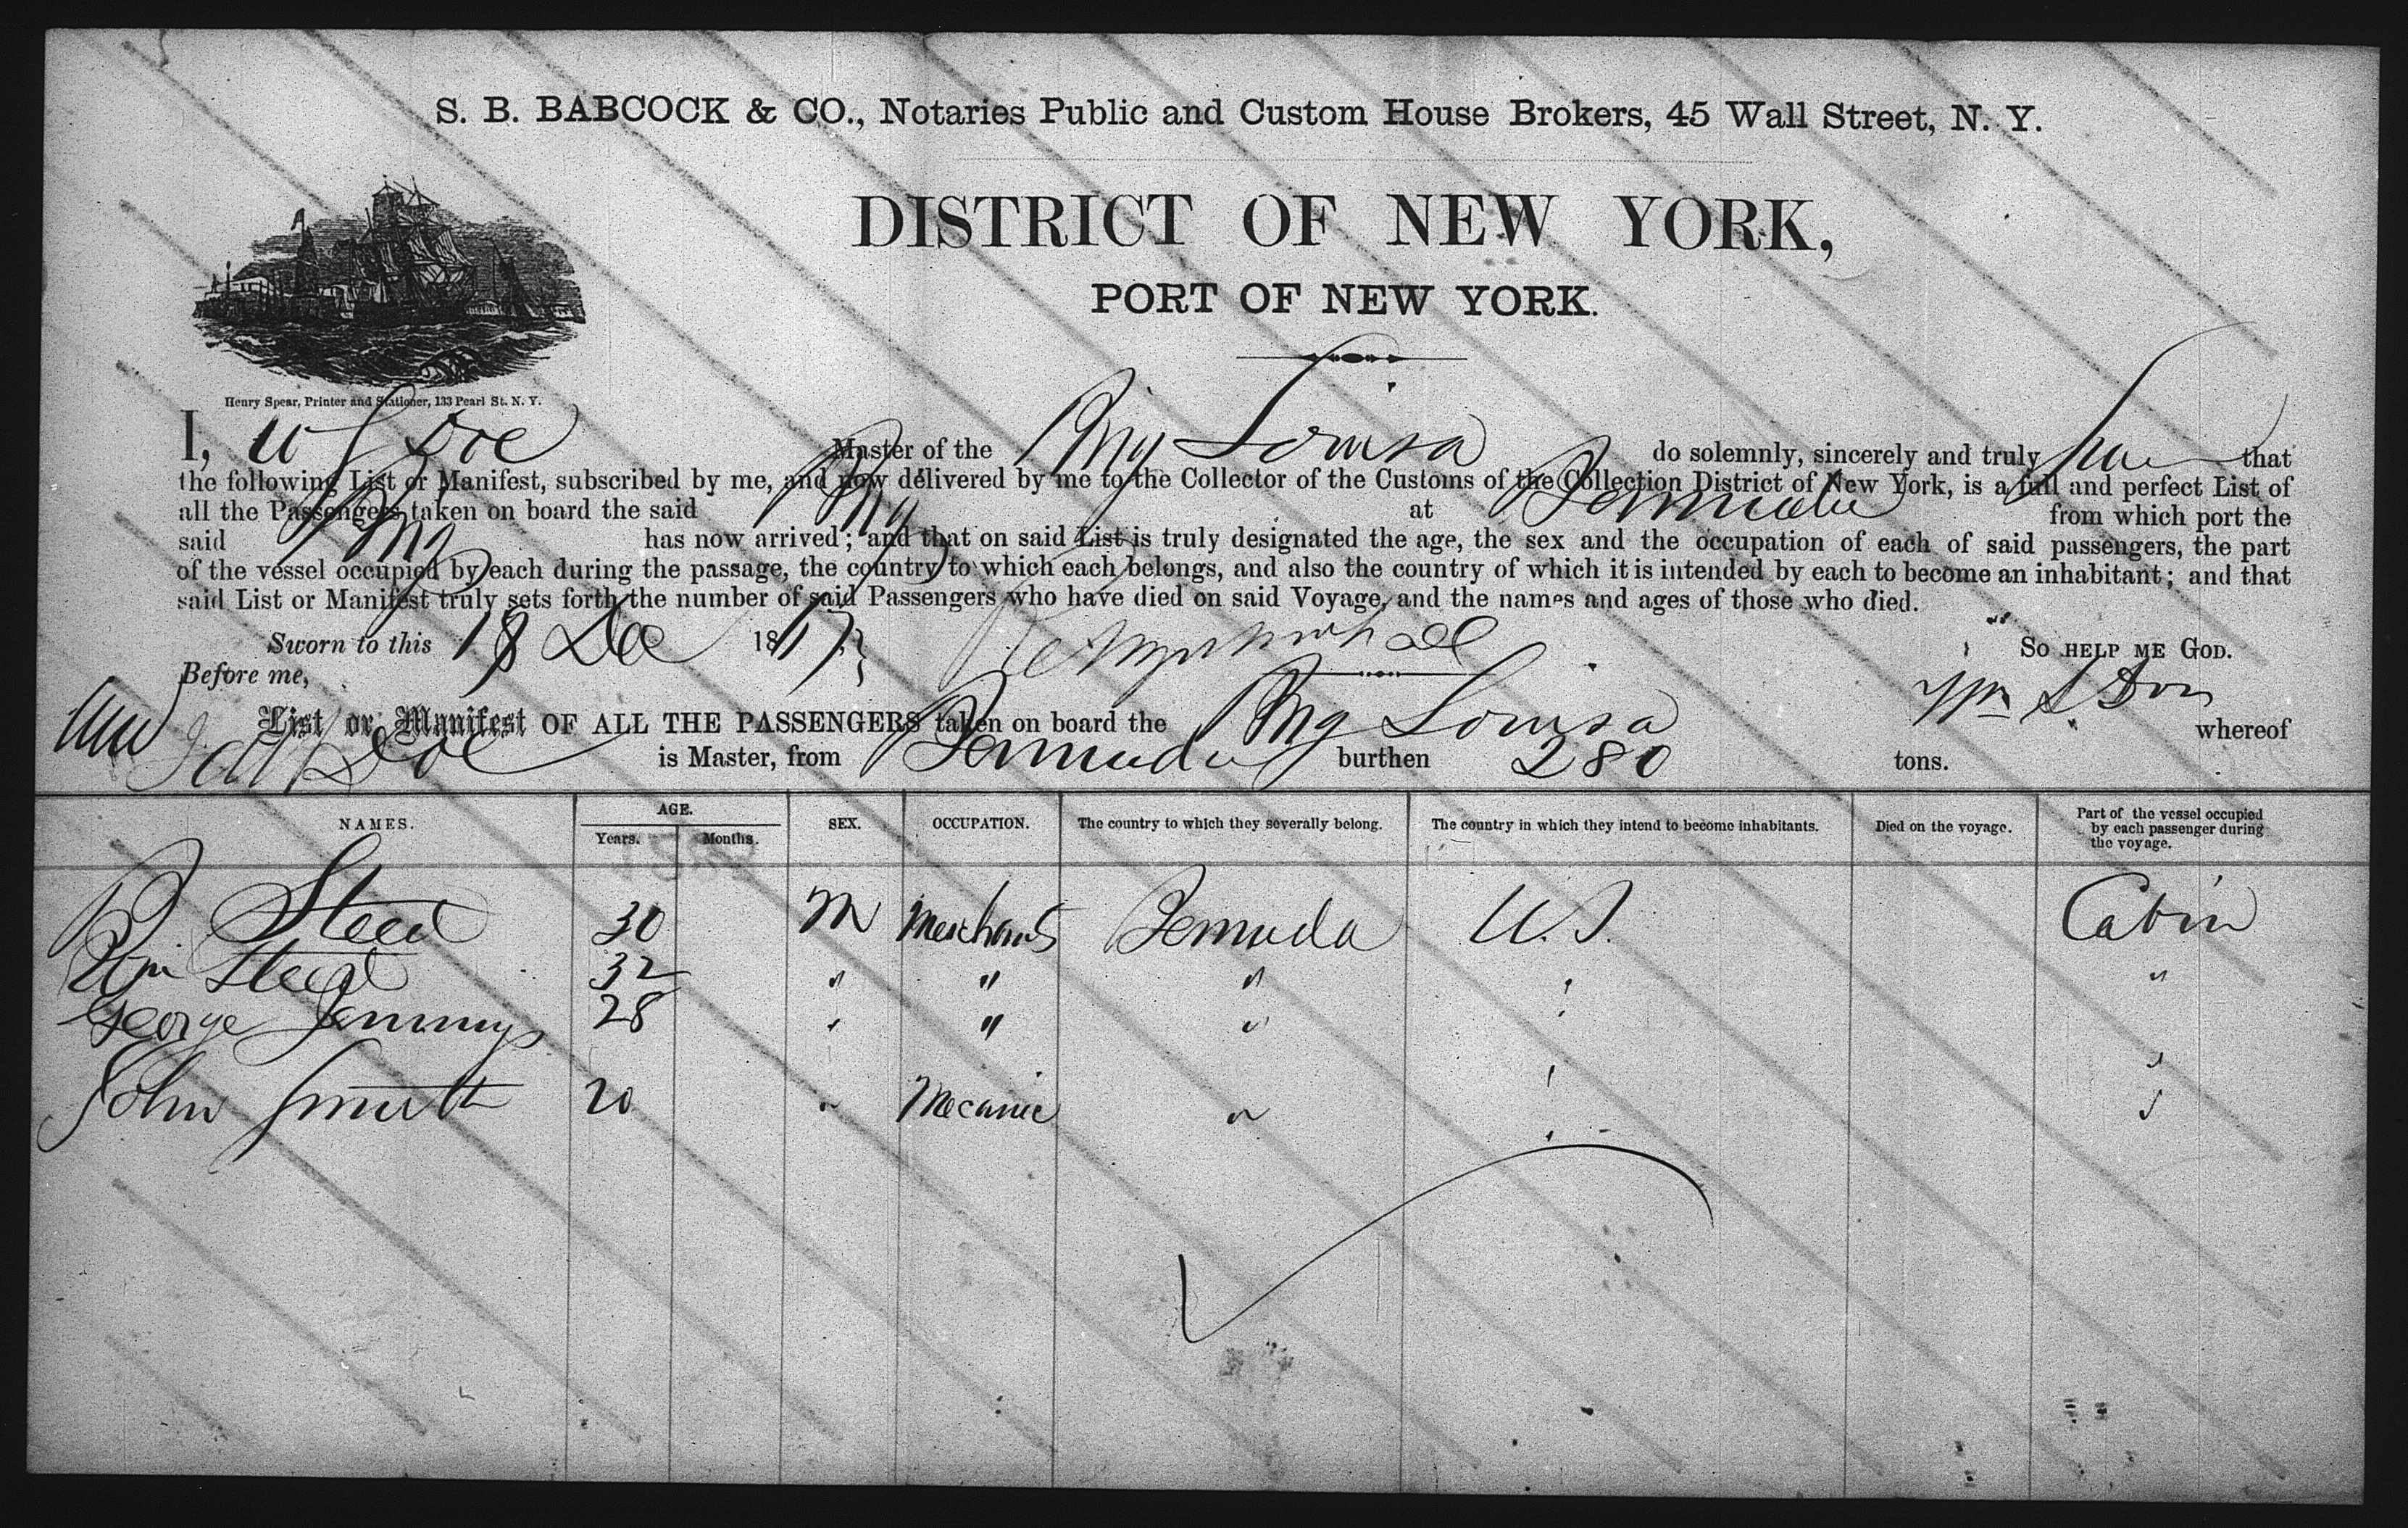 S. B. BABCOCK & CO., Notaries Public and Custom House Brokers, 45 Wall Street, N. Y.
DISTRICT OF NEW YORK,
PORT OF NEW YORK.
Henry Spear, Printer and Stationer, 133 Pearl St. N. Y.
I, W S Doe Master of the Brig Louisa do solemnly, sincerely and truly that
the following List or Manifest, subscribed by me, and now delivered by me to the Collector of the Customs of the Collection District of New York, is a full and perfect List of
all the Passengers taken on board the said Brig at Bermuda from which port the
said Brig has now arrived; and that on said List is truly designated the age, the sex and the occupation of each of said passengers, the part
of the vessel occupied by each during the passage, the country to which each belongs, and also the country of which it is intended by each to become an inhabitant; and that
said List or Manifest truly sets forth the number of said Passengers who have died on said Voyage, and the names and ages of those who died.
Sworn to this 18 Dec 18 } So HELP ME GOD.
Before me,
List or Manifest OF ALL THE PASSENGERS taken on board the Brig Louisa whereof
Doe is Master, from Bermuda burthen 280 tons.
NAMES. AGE. Years. Months. SEX. OCCUPATION. The country to which they severally belong. The country in which they intend to become inhabitants. Died on the voyage. Part of the vessel occupied by each passenger during the voyage.
Steed 30 M Merchants Bermuda U.S. Cabin
Wm Steed 32 " " " " "
George Jennings 28 " " " " "
John Smith 20 " Mecanic " " "